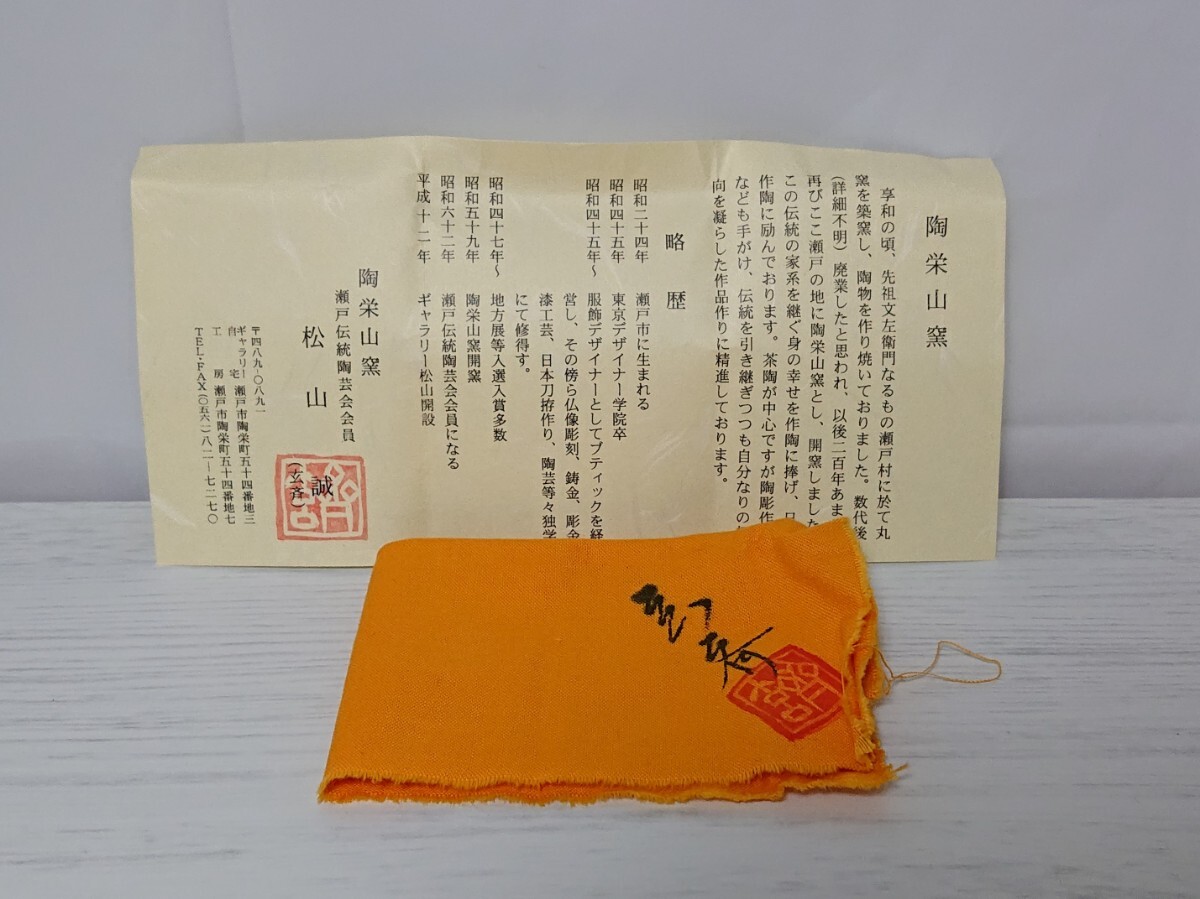 陶栄山窯
享和の頃、先祖文左衛門なるもの瀬戸村に於て丸
窯を築窯し、陶物を作り焼いておりました。数代後
(詳細不明)廃業したと思われ、以後二百年あま
再びここ瀬戸の地に陶栄山窯とし、開窯しました
この伝統の家系を継ぐ身の幸せを作陶に捧げ、日
作陶に励んでおります。茶陶が中心ですが陶彫作
なども手がけ、伝統を引き継ぎつつも自分なりの
向を凝らした作品作りに精進しております。
略歴
昭和二十四年 瀬戸市に生まれる
昭和四十五年 東京デザイナー学院卒
昭和四十五年〜 服飾デザイナーとしてブティックを経
営し、その傍ら仏像彫刻、鋳金、彫金
漆工芸、日本刀拵作り、陶芸等々独学
にて修得す。
昭和四十七年〜 地方展等入選入賞多数
昭和五十九年 陶栄山窯開窯
昭和六十二年 瀬戸伝統陶芸会会員になる
平成十二年 ギャラリー松山開設
陶栄山窯
瀬戸伝統陶芸会会員
松山 誠
(玄斉)
〒四八九-〇八九一
ギャラリー 瀬戸市陶栄町五十四番地三
自宅
工房 瀬戸市陶栄町五十四番地七
TEL・FAX(〇五六一)八二-七二七〇